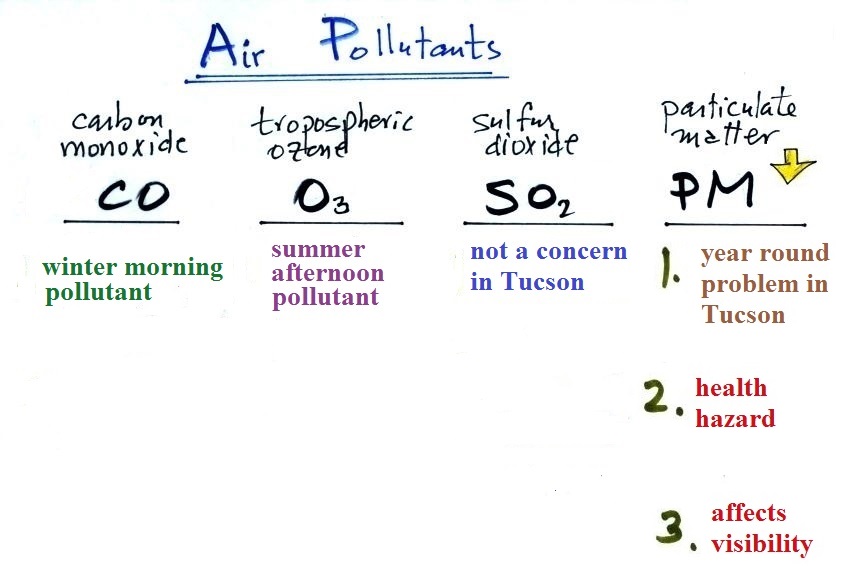 Air Pollutants
carbon
monoxide
CO
winter morning
pollutant
tropospheric
ozone
O3
summer
afternoon
pollutant
sulfur
dioxide
SO2
not a concern
in Tucson
particulate
matter
PM
1. year round
problem in
Tucson
2. health
hazard
3. affects
visibility